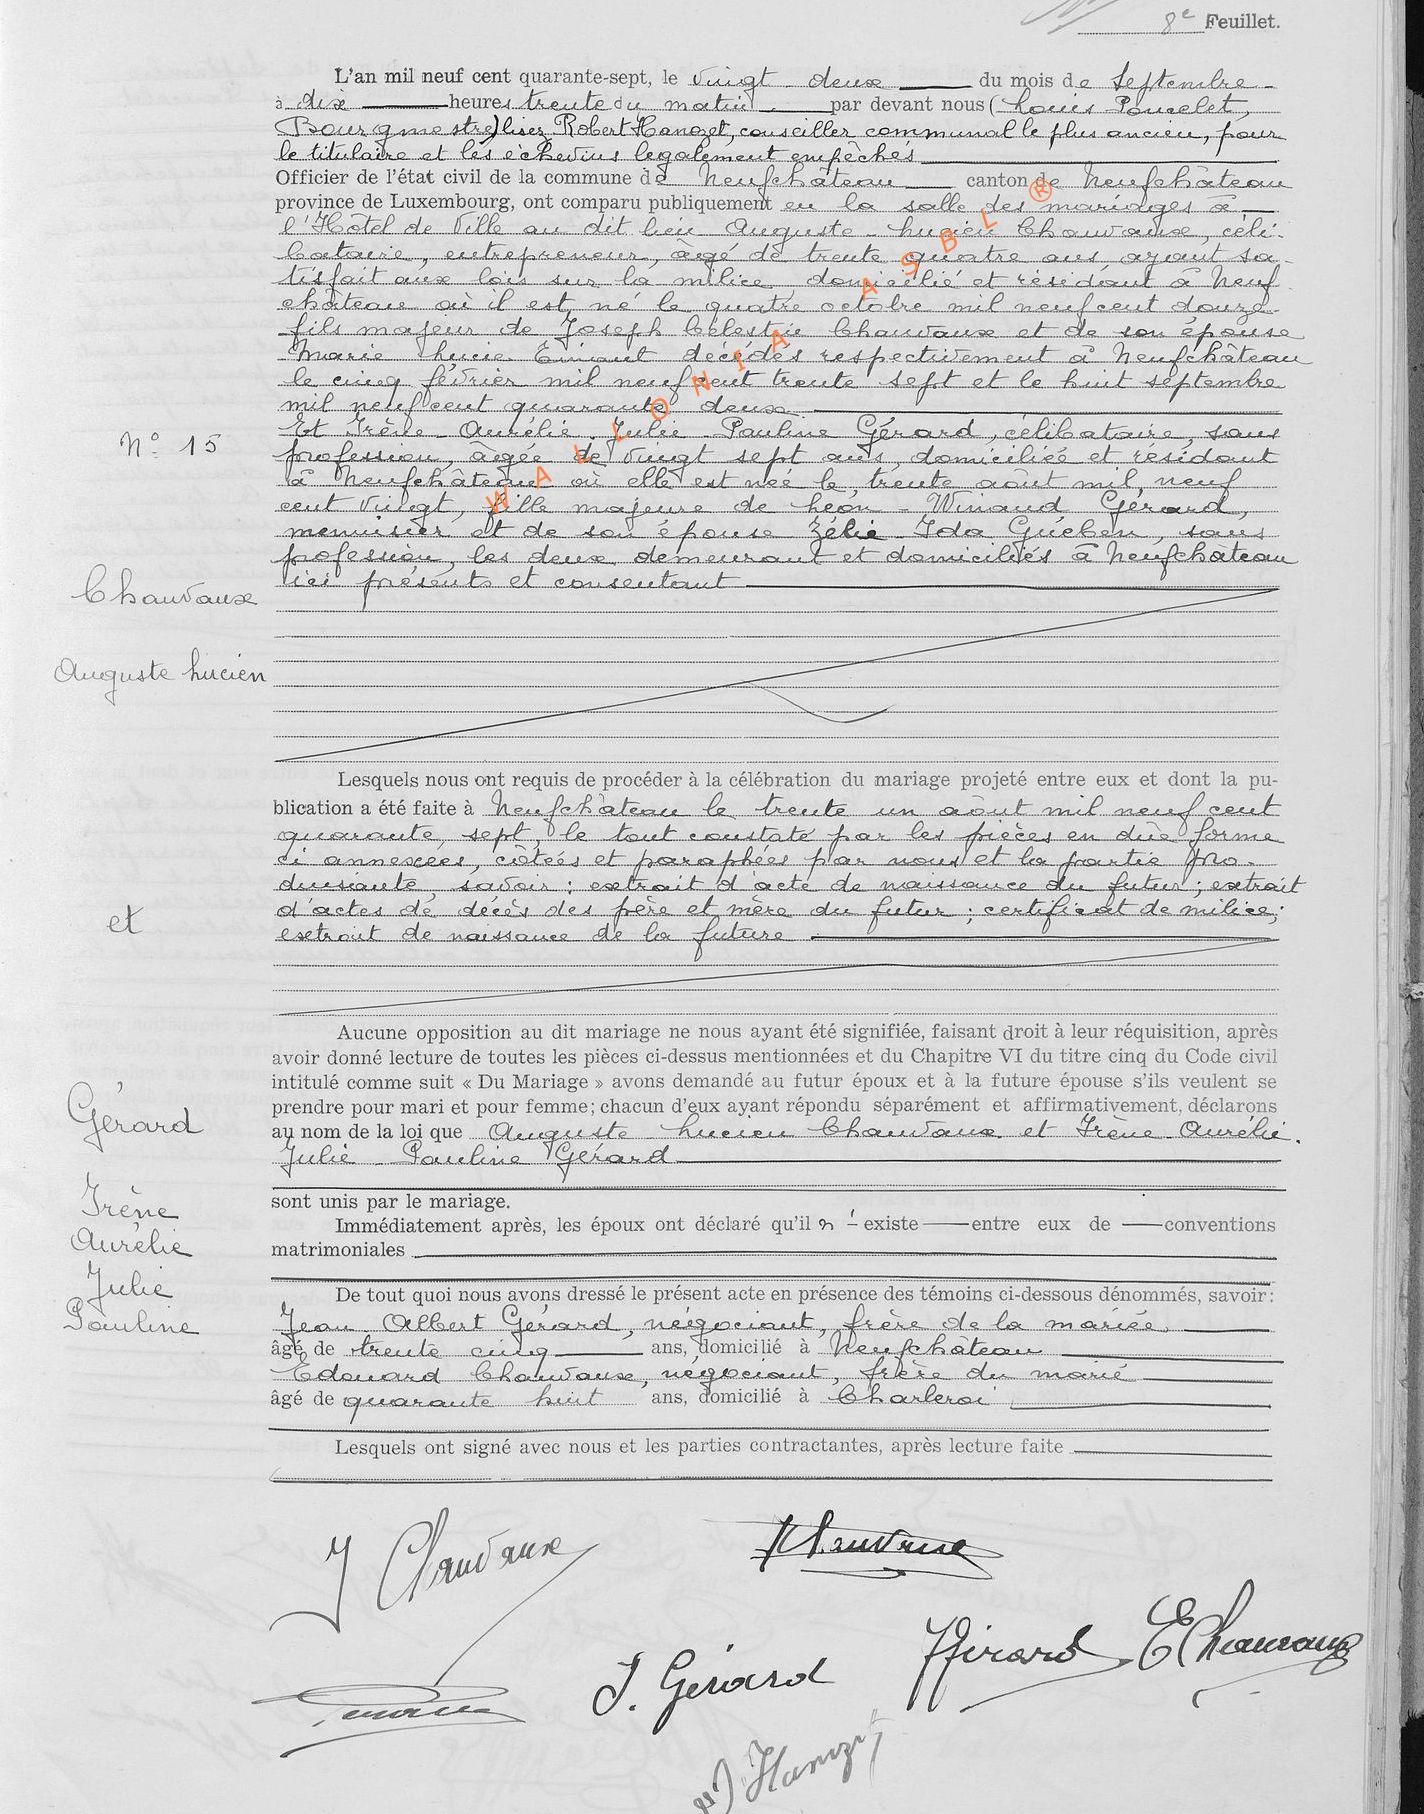 8e Feuillet.
L'an mil neuf cent quarante-sept, le vingt deux du mois de Septembre
à dix heures trente du matin par devant nous (Louis Poncelet,
Bourgmestre) lisez Robert Hanozet, conseiller communal le plus ancien, pour
le titulaire et les échevins legalement empêchés
Officier de l'état civil de la commune de Neufchâteau canton de Neufchâteau
province de Luxembourg, ont comparu publiquement en la salle des mariages à
l'Hôtel de Ville au dit lieu Auguste - Lucien Chauvaux, céli-
bataire, entrepreneur, âgé de trente quatre ans ayant sa-
tisfait aux lois sur la milice, domicilié et résidant à Neuf-
château où il est né le quatre octobre mil neuf cent douze
fils majeur de Joseph Célestin Chauvaux et de son épouse
Marie Lucie décédés respectivement à Neufchâteau
le cinq février mil neuf cent trente sept et le huit septembre
mil neuf cent quarante deux
Et Irène - Aurélie - Julie - Pauline Gérard, célibataire, sans
N° 15
profession, âgée de vingt sept ans, domiciliée et résidant
à Neufchâteau où elle est née le trente août mil neuf
cent vingt, fille majeure de Léon - Winand Gérard,
menuisier et de son épouse Zélie Ida Guében, sans
profession, les deux demeurant et domiciliés à Neufchateau
ici présents et consentant
WALLONIA ASBL ®
Chauvaux
Auguste Lucien
Lesquels nous ont requis de procéder à la célébration du mariage projeté entre eux et dont la pu-
blication a été faite à Neufchâteau le trente un août mil neuf cent
quarante sept, le tout constaté par les pièces en dûe forme
ci annexées, côtées et paraphées par nous et la partie pro-
duisante, savoir : extrait d'acte de naissance du futur ; extrait
d'actes de décès des père et mère du futur ; certificat de milice ;
et
extrait de naissance de la future
Aucune opposition au dit mariage ne nous ayant été signifiée, faisant droit à leur réquisition, après
avoir donné lecture de toutes les pièces ci-dessus mentionnées et du Chapitre VI du titre cinq du Code civil
intitulé comme suit « Du Mariage » avons demandé au futur époux et à la future épouse s'ils veulent se
prendre pour mari et pour femme; chacun d'eux ayant répondu séparément et affirmativement, déclarons
Gérard
au nom de la loi que Auguste Lucien Chauvaux et Irène - Aurélie -
Julie - Pauline Gérard
Irène
Aurélie
Julie
Pauline
sont unis par le mariage.
Immédiatement après, les époux ont déclaré qu'il n'existe entre eux de conventions
matrimoniales
De tout quoi nous avons dressé le présent acte en présence des témoins ci-dessous dénommés, savoir:
Jean Albert Gérard, négociant, frère de la mariée
âgé de trente cinq ans, domicilié à Neufchâteau
Edouard Chauvaux, négociant, frère du marié
âgé de quarante huit ans, domicilié à Charleroi
Lesquels ont signé avec nous et les parties contractantes, après lecture faite
J Chauvaux
Chauvaux
J. Gérard
Gérard
E Chauvaux
Hanozet